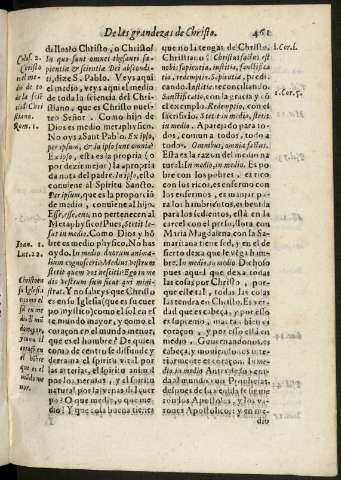 De las grandezas de Christo. 461
Colos. 2.
Christo
medio de to
da la scie
cia Christiano.
Rom. 1.
Joan. 1.
Luc. 22.
Christo en
su Iglesia
como el
sol en me
coraçõ en
el hõbre
que es el
mũdo me
nor.
Christo, o Christo!
In quo sunt omnes thesauri sa-
pientiæ & scientiæ Dei abscondi-
ti, dize S. Pablo. Veys aqui
el medio, veys aqui el medio
de toda la sciencia del Chris-
tiano, que es Christo nues-
tro Señor. Como hijo de
Dios es medio metaphysico.
No oys a Sant Pablo. Ex ipso,
per ipsum, & in ipso sunt omnia?
Ex ipso, esta es la propria (o
por dezir mejor) la apropria
ta nota del padre. In ipso, esto
conviene al Spiritu Sancto.
Per ipsum, que es la proporciõ
de medio, conviene al hijo:
Esse, esse, no pertenecen al
Metaphysico? Pues, Stetit Ie-
sus in medio. Como Dios y hõ
bre es medio physico. No has
oydo. In medio duorum anima-
lium cognosceris: Medius vestrum
stetit quem vos nescitis: Ego in me
dio vestrum sum sicut qui mini-
strat. Y no sabeys que Christo
es en su Iglesia (que es su cuer
po mystico) como el sol en es
te mundo mayor, y como el
coraçon en el mundo menor,
que es el hombre? De quien
como de centro se diffunde y
derrama el spiritu vital por
las arterias, el spiritu animal
por los nervios, y el spiritu
natural por las venas del cuer
po? O que medio, o que me-
dio! Y que cosa buena tienes
que no la tengas de Christo, 1. Cor. 1.
Christiano? Christus factus est
nobis sapientia, iustitia, sanctifica
tio, redemptio. Sapientia, predi-
cando. Iustitia, reconciliando.
Sanctificatio, con la gracia y cõ 1. Cor. 5.
el exemplo. Redemptio, con el
sacrificio. Stetit in medio, stetit
in medio. Aparejado para to-
dos, comun a todos, todo a
todos. Omnibus, omnia factus.
Esta es la razon del medio na
tural: In medio, in medio. Es po
bre con los pobres, es rico
con los ricos, es enfermo con
los enfermos, es manjar pa-
ra los hambriẽtos, es bevida
para los sedientos, està en la
carcel con el preso, llora con
Maria Magdalena, con la Sa-
maritana tiene sed, y en el de
sierto dexa que le tẽga ham-
bre. In medio, in medio. Dichoso
pues aquel que dexa todas
las cosas por Christo, por-
que este tal, todas las cosas
las tendra en Christo. Es ver-
dad que es cabeça, y por esso
es supremo, mas tambien es
coraçon, y por esso està en
medio. Governandonos, es
cabeça, y uniendonos inter-
namente es coraçon. In me-
dio, in medio de Angeles y en
el mundo sus Prophetas,
despues de su venida le siguie
ron los Apostoles, y los va-
rones Apostolicos: y en me-
dio